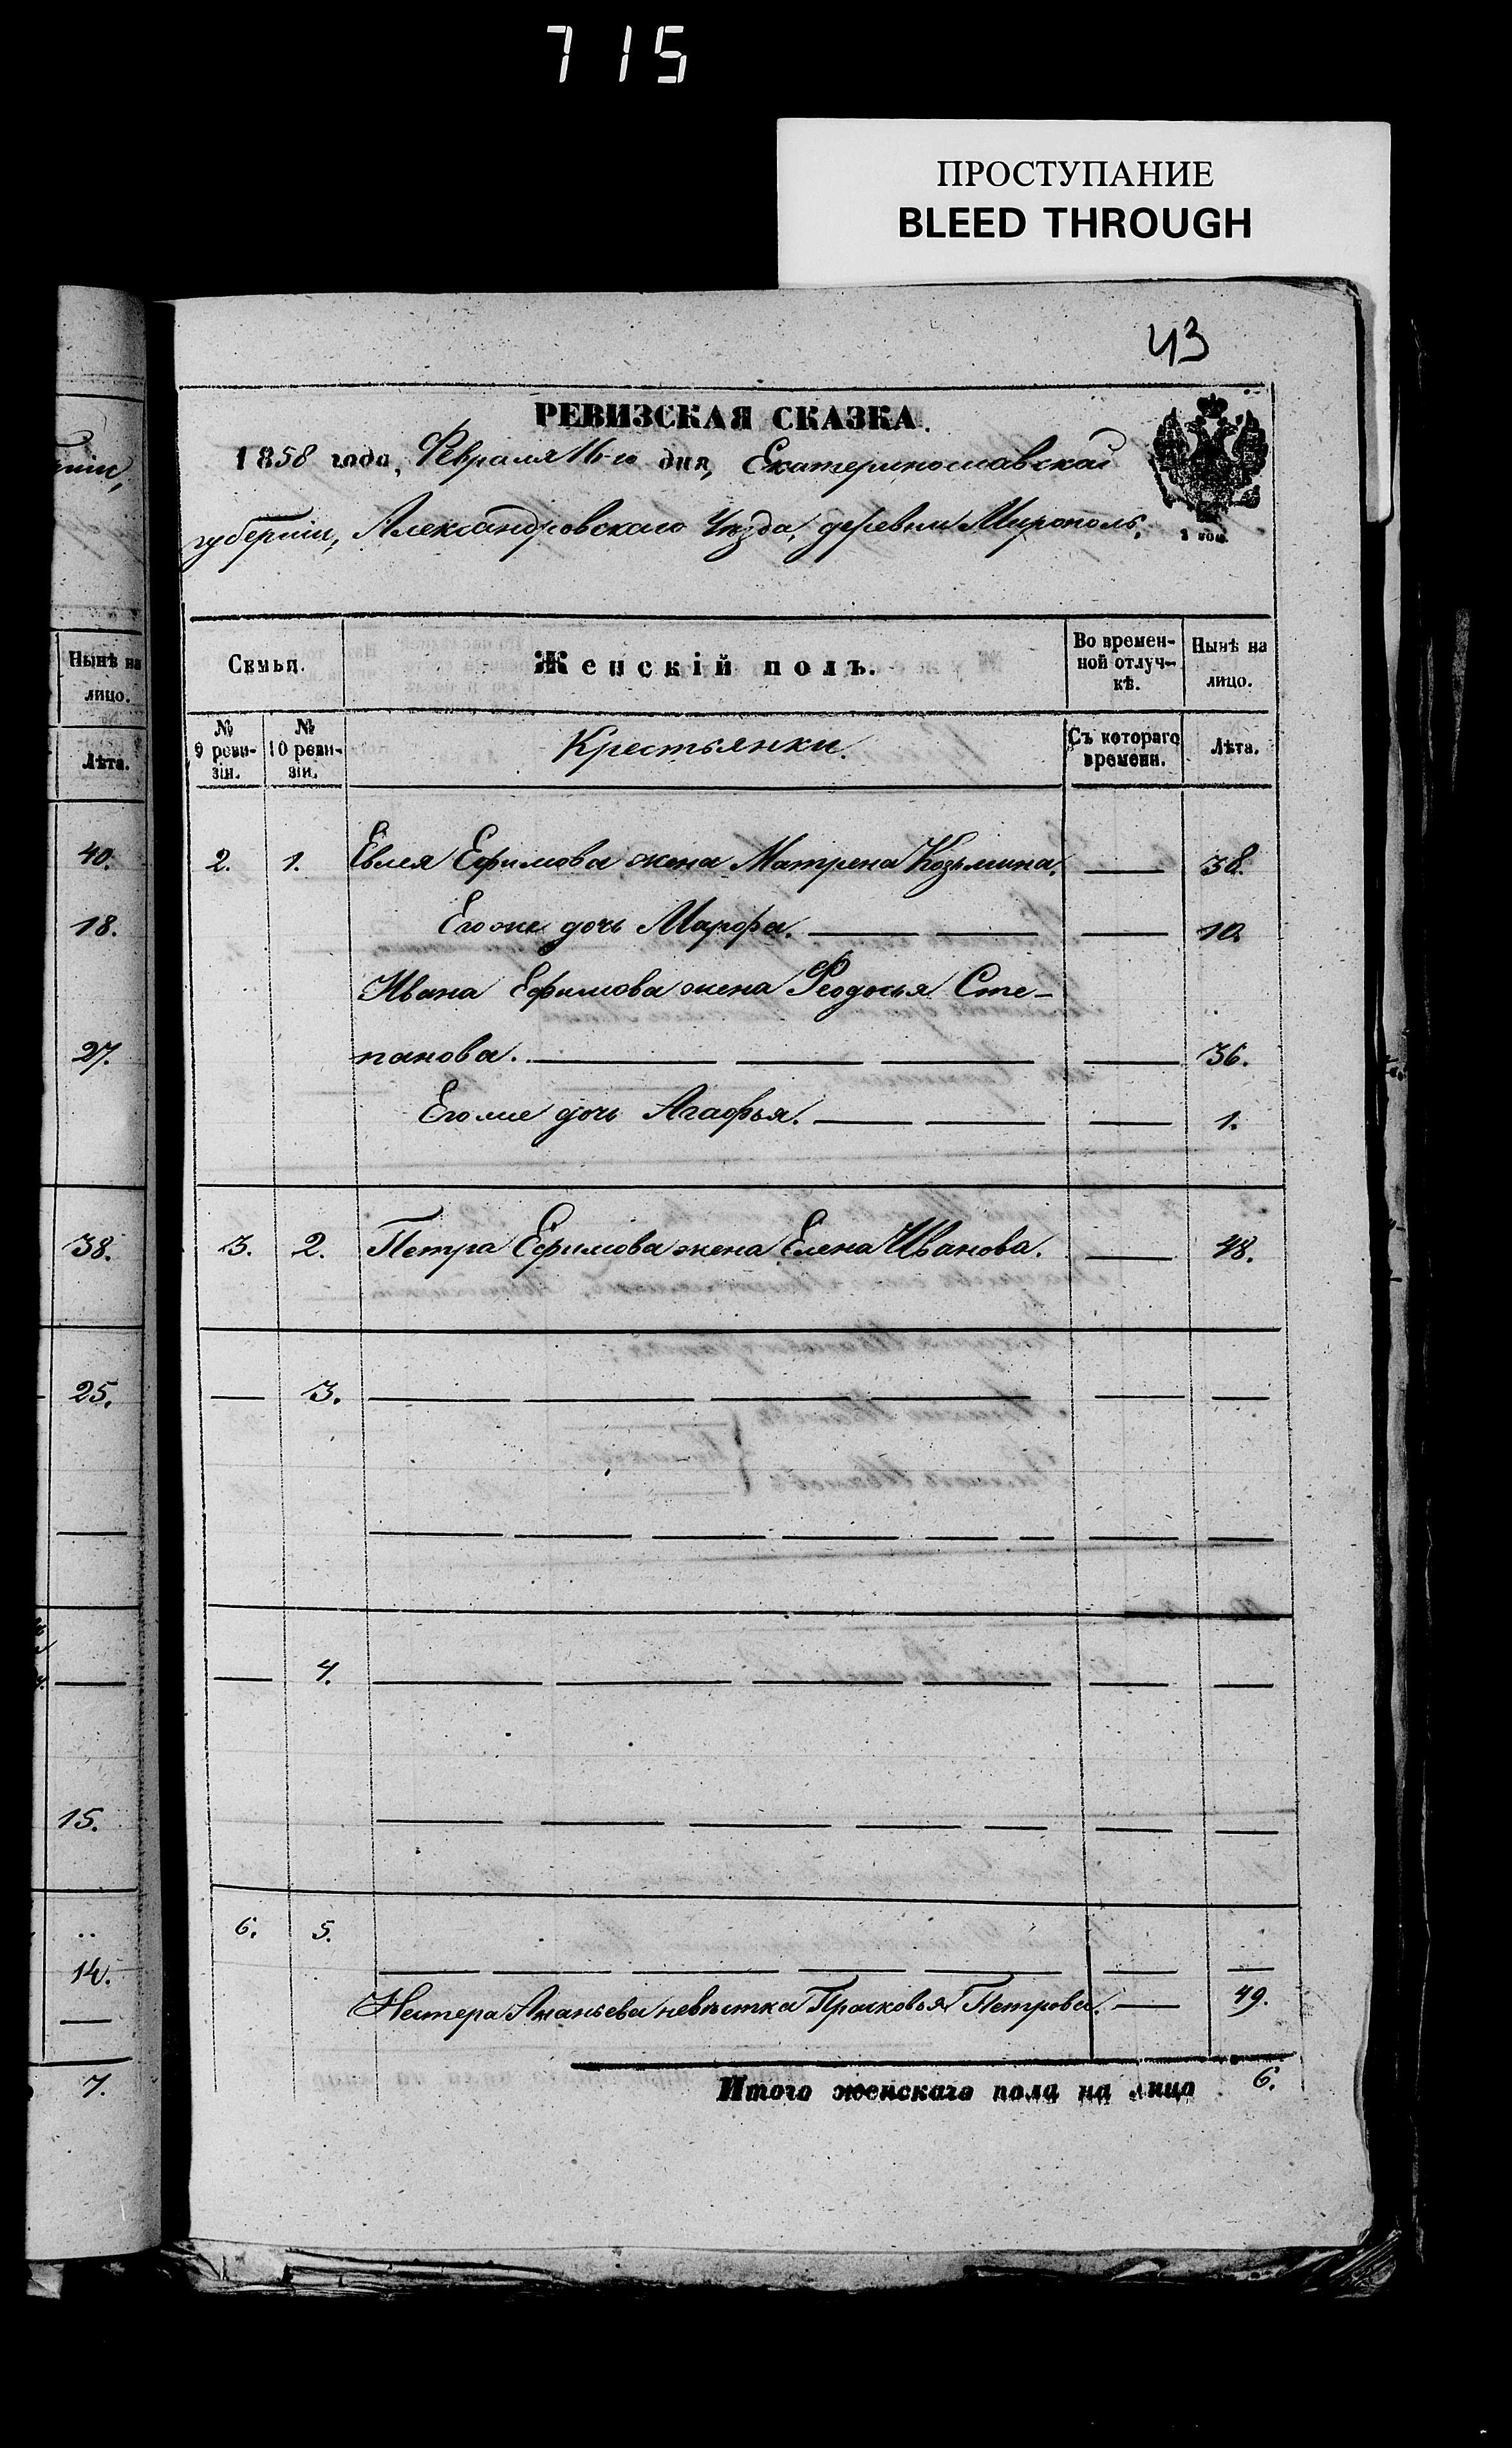 715
ПРОСТУПАНИЕ
BLEED THROUGH
43
РЕВИЗСКАЯ СКАЗКА.
1858 года, Февраля 16-го дня, Екатеринославской
губернiи, Александровскаго Уѣзда, деревни Мирополь,
Нынѣ на
лицо.
Лѣта.
Семьи.
Женскій полъ.
Во времен-
ной отлуч-
кѣ.
Нынѣ на
лицо.
№
9 реви-
зіи.
№
10 реви-
зіи.
Крестьянки.
Съ котораго
времени.
Лѣта.
40.
2. 1. Евлея Ефимова жена Матрена Козьмина. — 38.
18.
Его же дочь Марфа. — — — 10.
Ивана Ефимова жена Феодосья Сте-
27.
панова. — — — — 36.
Его же дочь Агафья. — — — 1.
38.
3. 2. Петра Ефимова жена Елена Иванова. — 48.
25.
— 3. — — — — — —
— 4. — — — — — —
15.
6. 5.
14.
Нестера Ананьева невѣстка Прасковья Петрова. — 49.
7.
Итого женскаго пола на лицо 6.